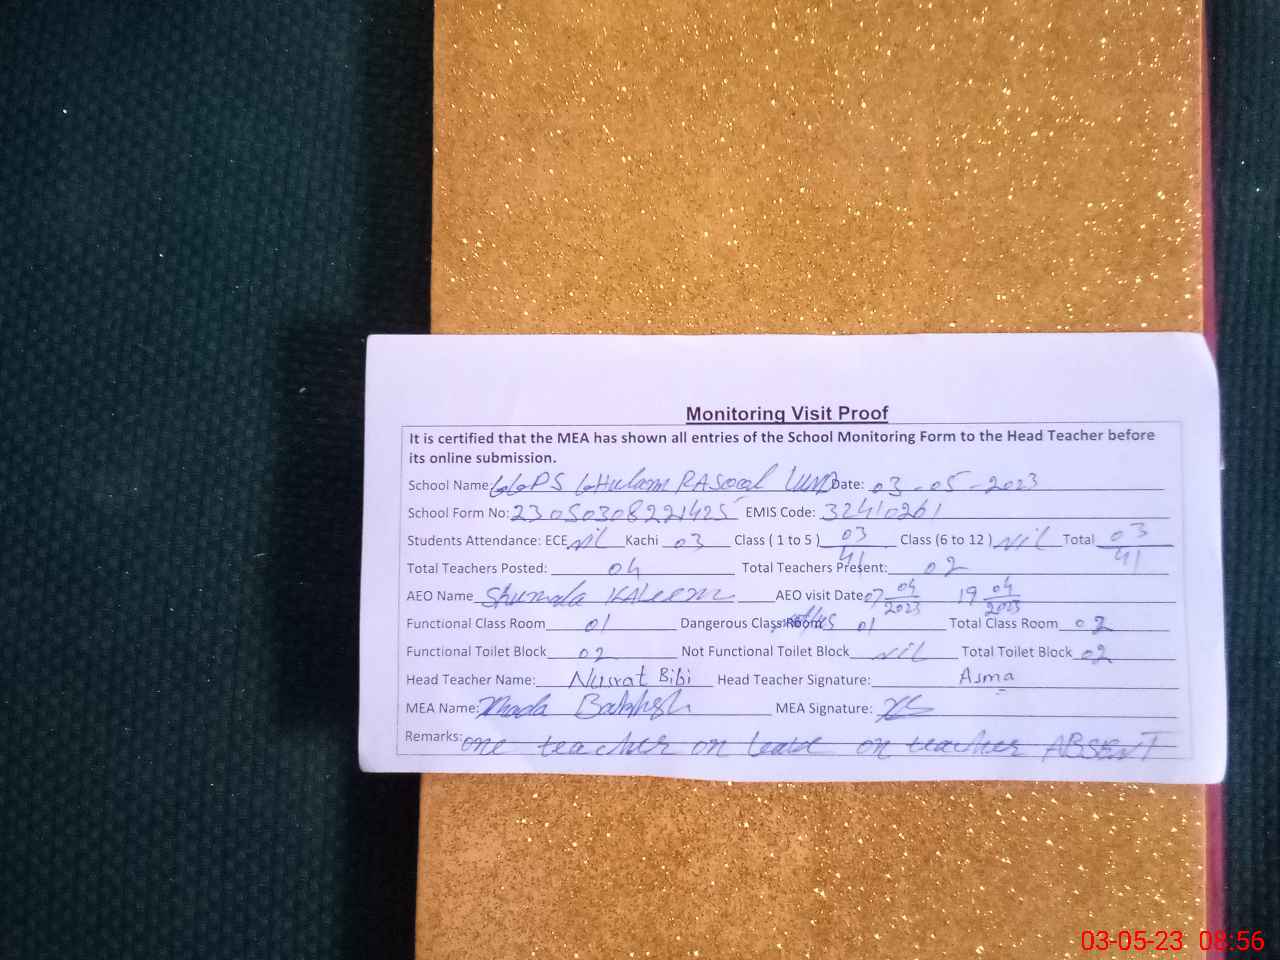 Monitoring Visit Proof
It is certified that the MEA has shown all entries of the School Monitoring Form to the Head Teacher before
its online submission.
School Name: GGPS GHulam RASool LUND Date: 03-05-2023
School Form No: 23050308221425 EMIS Code: 32410261
Students Attendance: ECE Nil Kachi 03 Class ( 1 to 5 ) 03/41 Class (6 to 12 ) Nil Total 03/41
Total Teachers Posted: 04 Total Teachers Present: 02
AEO Name Shumaila KALeem AEO visit Date 07 04/2023 19 04/2023
Functional Class Room 01 Dangerous Class Rooms 01 Total Class Room 02
Functional Toilet Block 02 Not Functional Toilet Block Nil Total Toilet Block 02
Head Teacher Name: Nusrat Bibi Head Teacher Signature: Asma
MEA Name: Bakhsh MEA Signature:
Remarks: one teacher on leave on teacher ABSENT
03-05-23 08:56